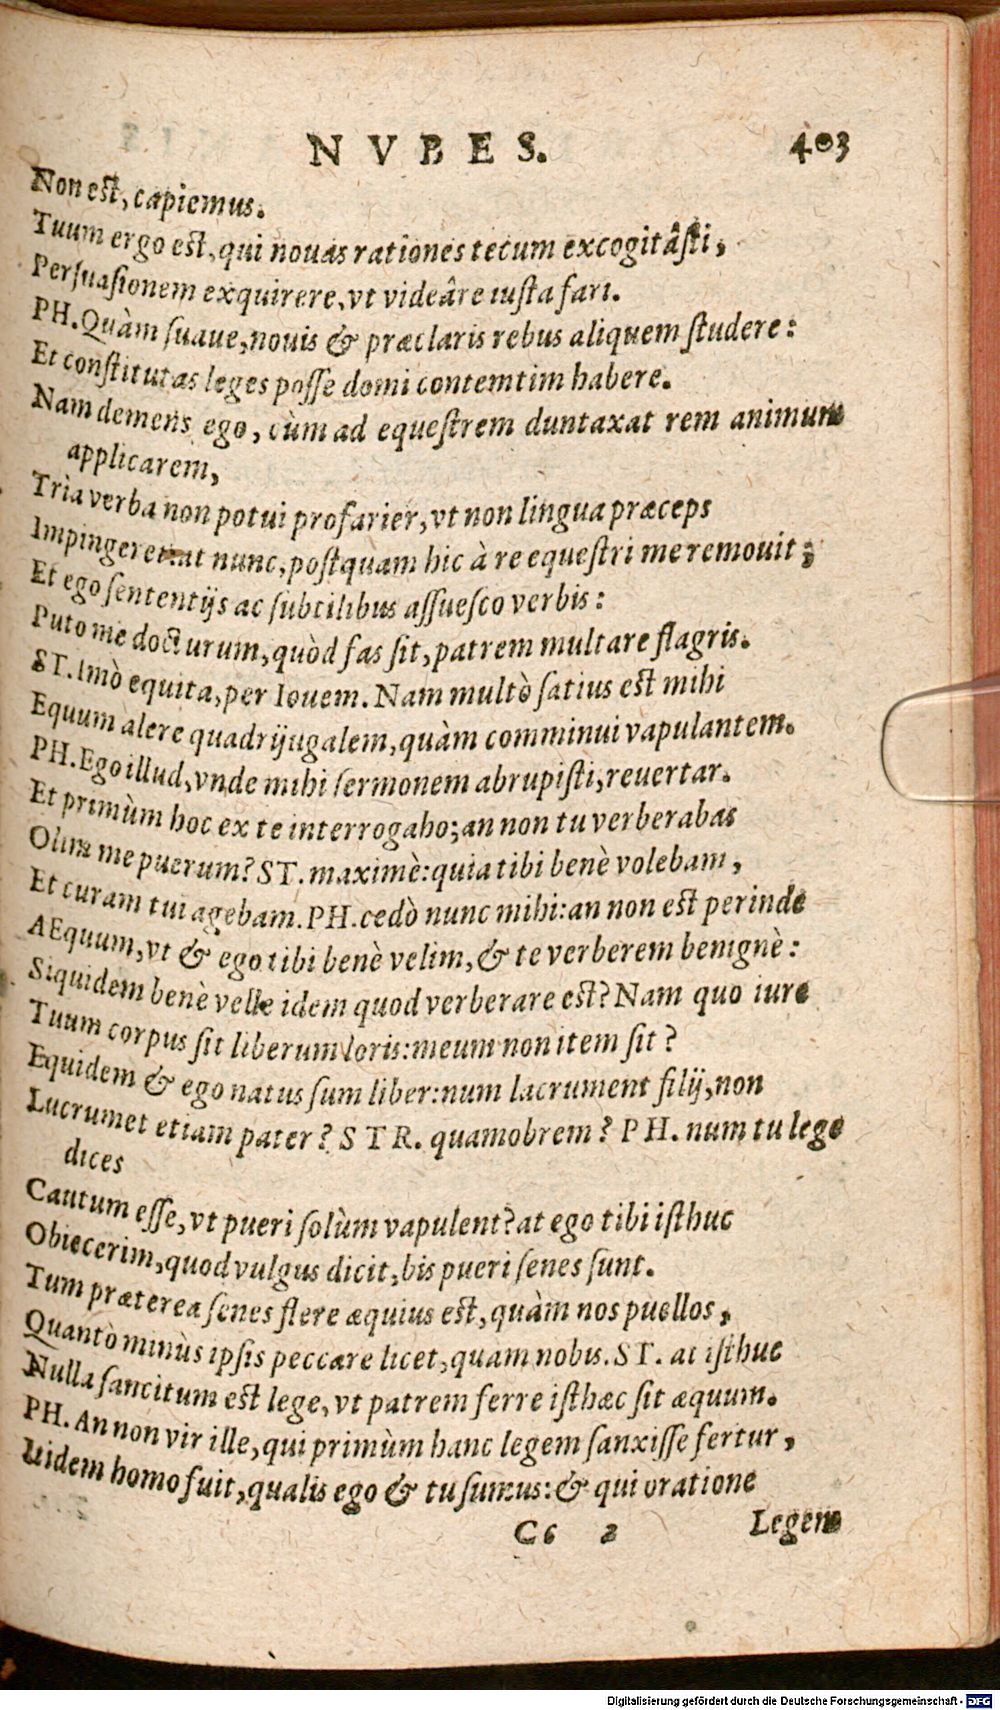 NVBES. 403
Non est, capiemus.
Tuum ergo est, qui nouas rationes tecum excogitâsti,
Persuasionem exquirere, vt videâre iusta fari.
PH. Quàm suaue, nouis & præclaris rebus aliquem studere:
Et constitutas leges posse domi contemtim habere.
Nam demens ego, cùm ad equestrem duntaxat rem animum
applicarem,
Tria verba non potui profarier, vt non lingua præceps
Impingeret: at nunc, postquam hic à re equestri me remouit;
Et ego sententijs ac subtilibus assuesco verbis:
Puto me docturum, quòd fas sit, patrem multare flagris.
ST. Imò equita, per Iouem. Nam multò satius est mihi
Equum alere quadrijugalem, quàm comminui vapulantem.
PH. Ego illud, vnde mihi sermonem abrupisti, reuertar.
Et primùm hoc ex te interrogabo; an non tu verberabas
Olim me puerum? ST. maximè: quia tibi benè volebam,
Et curam tui agebam. PH. cedò nunc mihi: an non est perinde
AEquum, vt & ego tibi benè velim, & te verberem benignè:
Siquidem benè velle idem quod verberare est? Nam quo iure
Tuum corpus sit liberum loris: meum non item sit?
Equidem & ego natus sum liber: num lacrument filij, non
Lucrumet etiam pater? STR. quamobrem? PH. num tu lege
dices
Cautum esse, vt pueri solùm vapulent? at ego tibi isthuc
Obiecerim, quod vulgus dicit, bis pueri senes sunt.
Tum præterea senes flere æquius est, quàm nos puellos,
Quantò minùs ipsis peccare licet, quam nobis. ST. at isthuc
Nulla sancitum est lege, vt patrem ferre isthæc sit æquum.
PH. An non vir ille, qui primùm hanc legem sanxisse fertur,
Itidem homo fuit, qualis ego & tu sumus: & qui oratione
Cc 2 Legem
Digitalisierung gefördert durch die Deutsche Forschungsgemeinschaft - DFG